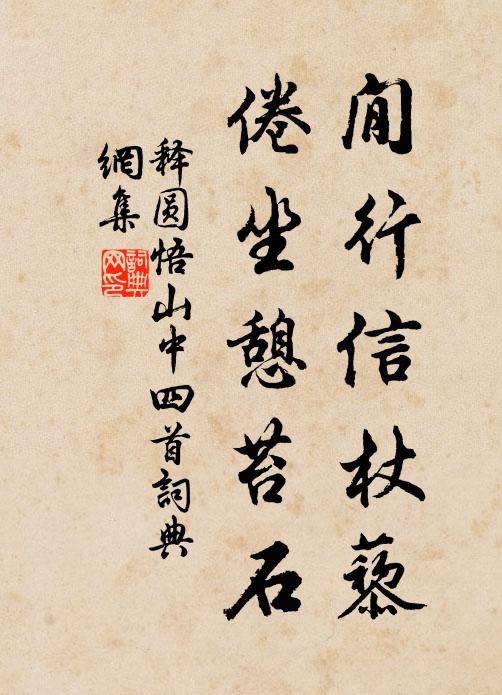 閒行信杖藜
倦坐憩苔石
释圆悟山中四首詞典
網集
詞典
网印